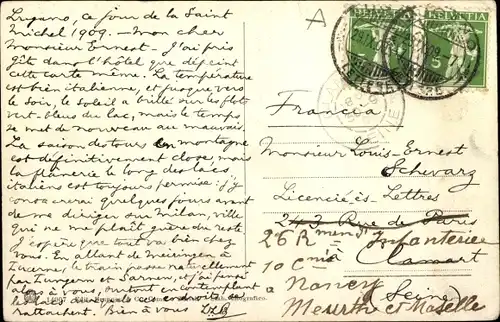 Lugano, ce jour de la Saint
Michel 1909. — Mon cher
Monsieur Ernest — J'ai pris
gîte dans l'hôtel que dépeint
cette carte même. La température
est bien italienne, et jusque vers
le soir, le soleil a brillé sur les flots
vert-bleus du lac, mais le temps
se met de nouveau au mauvais.
La saison des tours en montagne
est définitivement close, mais
la flânerie le long des lacs
italiens est toujours permise. J'y
consacrerai quelques jours avant
de me diriger sur Milan, ville
qui ne me plaît guère du reste
J'espère que tout va bien chez
Vous. En allant de Meiringen à
Lucerne, le train passe naturellement
par Lungern et Sarnen, et j'ai pensé
alors à vous, surtout en contemplant
rattachent. Bien à vous
HELVETIA
5
Francia
Monsieur Louis-Ernest
Schwarz
Licencié-ès-Lettres
243 Rue de Paris
26 R Infanterie
Clamart
10 Cnie
à Nancy
(Seine)
Meurthe et Moselle